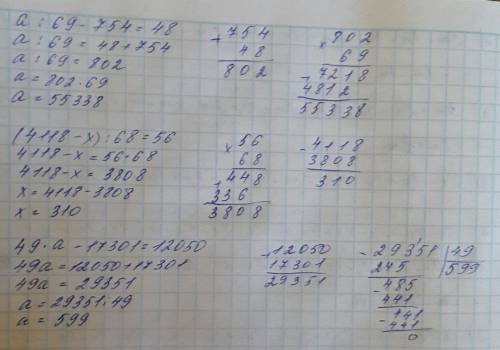 a : 69 - 754 = 48
a : 69 = 48 + 754
a : 69 = 802
a = 802 · 69
a = 55338
+ 754
48
802
× 802
69
+ 7218
4812
55338
(4118 - x) : 68 = 56
4118 - x = 56 · 68
4118 - x = 3808
x = 4118 - 3808
x = 310
× 56
68
+ 448
336
3808
- 4118
3808
310
49 · a - 17301 = 12050
49a = 12050 + 17301
49a = 29351
a = 29351 : 49
a = 599
+ 12050
17301
29351
- 29351 | 49
245 599
- 485
441
- 441
441
0